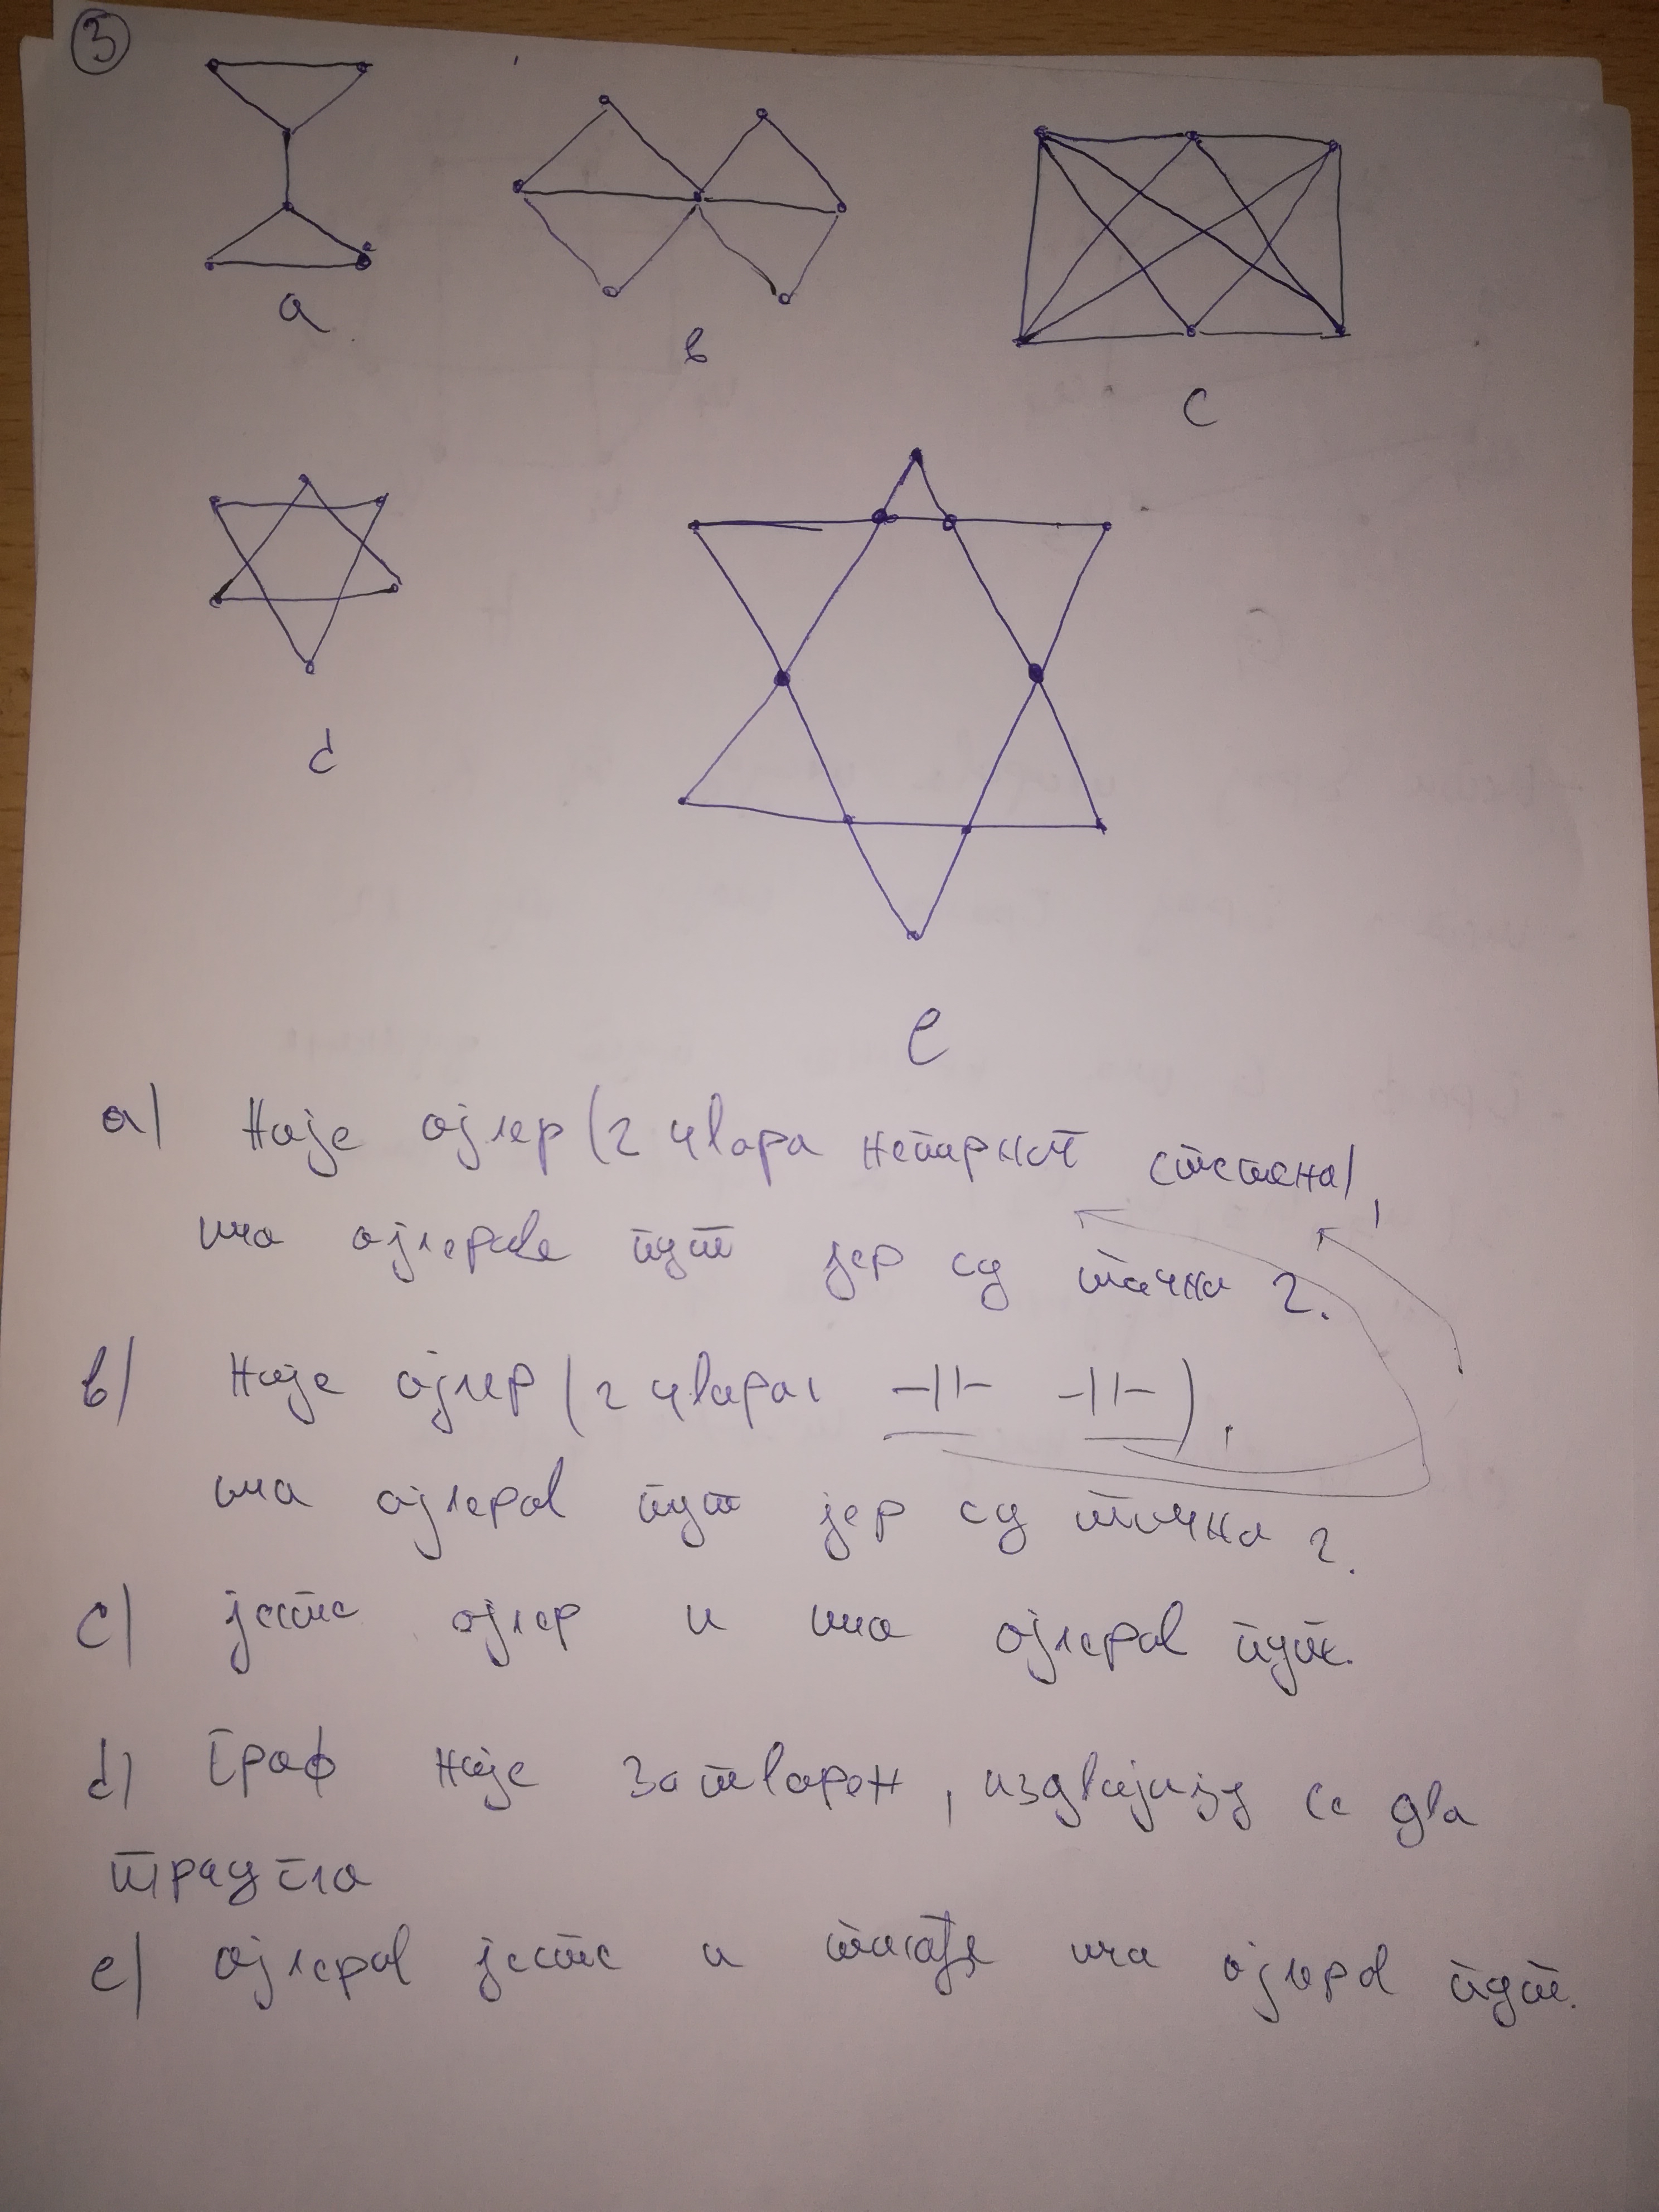 3
a
b
c
d
e
a) Није ојлер (2 чвора непарног степена),
има ојлеров пут јер су тачно 2.
b) Није ојлер (2 чвора -||- -||-),
има ојлеров пут јер су тачно 2.
c) јесте ојлер и има ојлеров пут.
d) Граф није затворен, издвајају се два
троугла
e) ојлеров јесте и такође има ојлеров пут.